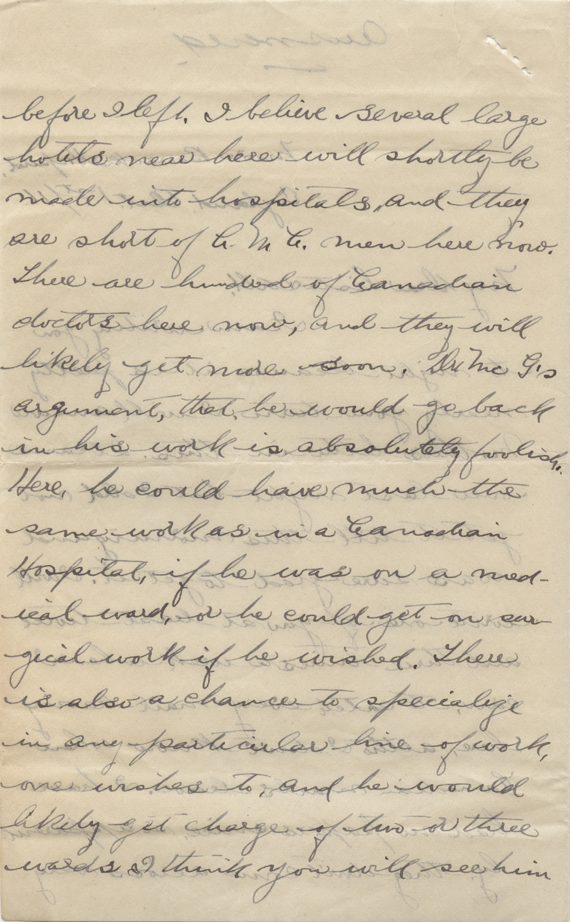 before I left. I believe several large
hotels near here will shortly be
made into hospitals, and they
are short of C. M. C. men here now.
There are hundred of Canadian
doctors here now, and they will
likely get more soon. Dr Mc G's
argument, that he would go back
in his work is absolutely foolish.
Here, he could have much the
same work as in a Canadian
Hospital, if he was on a med-
ical ward, or he could get on sur-
gical work if he wished. There
is also a chance to specialize
in any particular line of work,
one wishes to, and he would
likely get charge of two or three
wards. I think you will see him